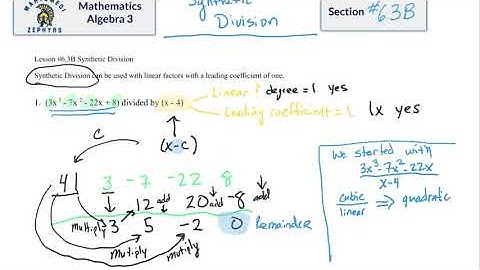 Mathematics
Algebra 3
ZEPHYRS
Synthetic
Division
Section #6.3B
Lesson #6.3B Synthetic Division
Synthetic Division can be used with linear factors with a leading coefficient of one.
1. (3x³ - 7x² - 22x + 8) divided by (x - 4)
Linear? degree = 1 yes
Leading coefficient = 1 1x yes
C
(x-c)
4 3 -7 -22 8
12 add 20 add -8 add
multiply 3 multiply 5 multiply -2 0 Remainder
We started with
3x³-7x²-22x
x-4
cubic
linear ⇒ quadratic